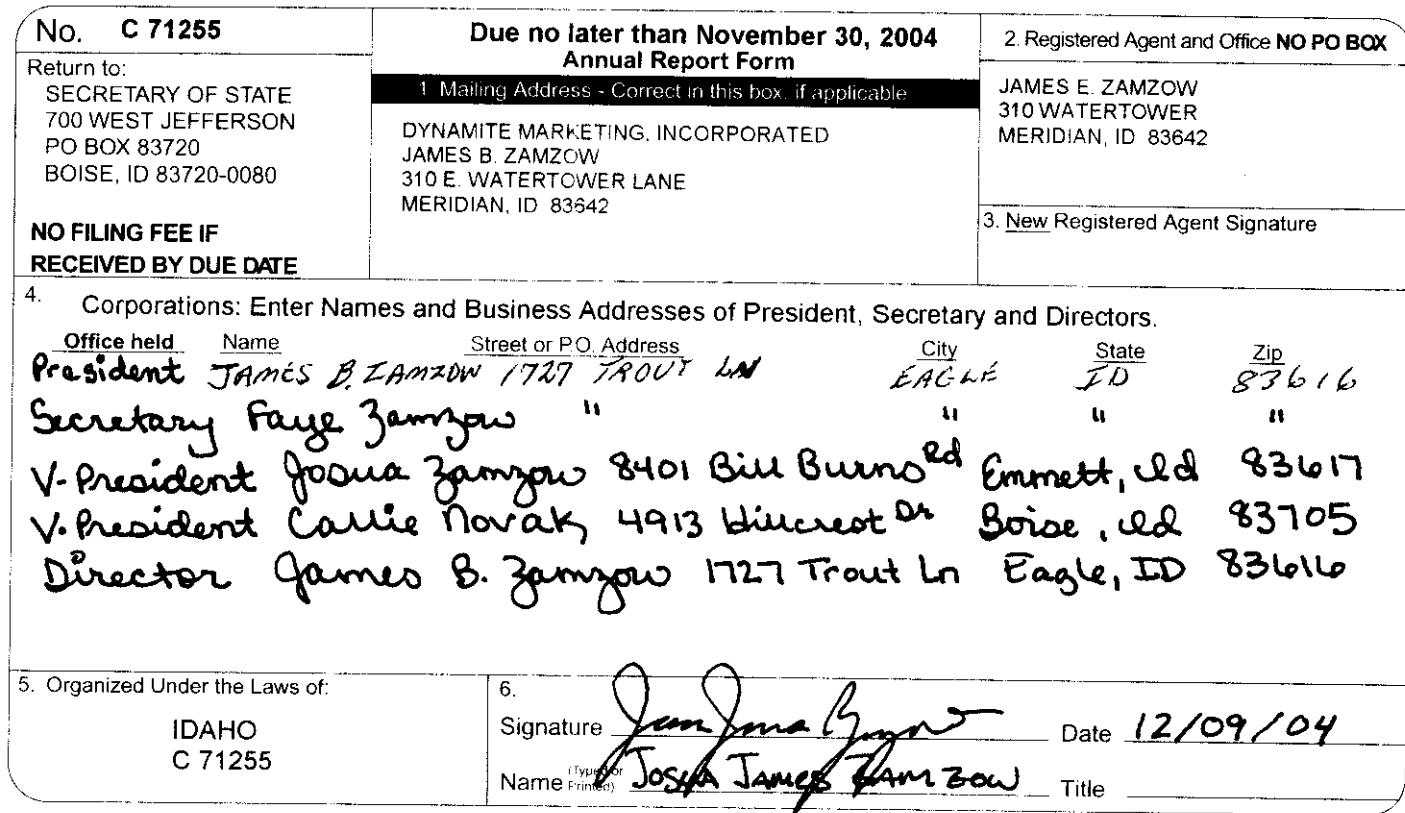 No. C 71255
Return to:
SECRETARY OF STATE
700 WEST JEFFERSON
PO BOX 83720
BOISE, ID 83720-0080
NO FILING FEE IF
RECEIVED BY DUE DATE
Due no later than November 30, 2004
Annual Report Form
1 Mailing Address - Correct in this box, if applicable
DYNAMITE MARKETING, INCORPORATED
JAMES B. ZAMZOW
310 E. WATERTOWER LANE
MERIDIAN, ID 83642
2. Registered Agent and Office NO PO BOX
JAMES E. ZAMZOW
310 WATERTOWER
MERIDIAN, ID 83642
3. New Registered Agent Signature
4. Corporations: Enter Names and Business Addresses of President, Secretary and Directors.
Office held Name Street or P.O. Address City State Zip
President JAMES B. ZAMZOW 1727 TROUT LN EAGLE ID 83616
Secretary Faye Zamzow " " " "
V-President Josua Zamzow 8401 Bill Burns Rd Emmett, Id 83617
V.President Callie Novak 4913 Hillcrest Dr Boise, Id 83705
Director James B. Zamzow 1727 Trout Ln Eagle, ID 83616
5. Organized Under the Laws of:
IDAHO
C 71255
6.
Signature Date 12/09/04
Name (Typed or Printed) JAMES ZAMZOW Title